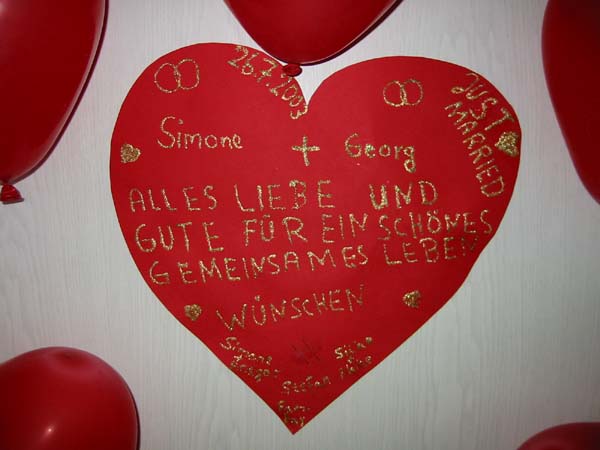 26.7.2003
JUST
MARRIED
Simone + Georg
ALLES LIEBE UND
GUTE FÜR EIN SCHÖNES
GEMEINSAMES LEBEN
WÜNSCHEN
Simone
Stefan